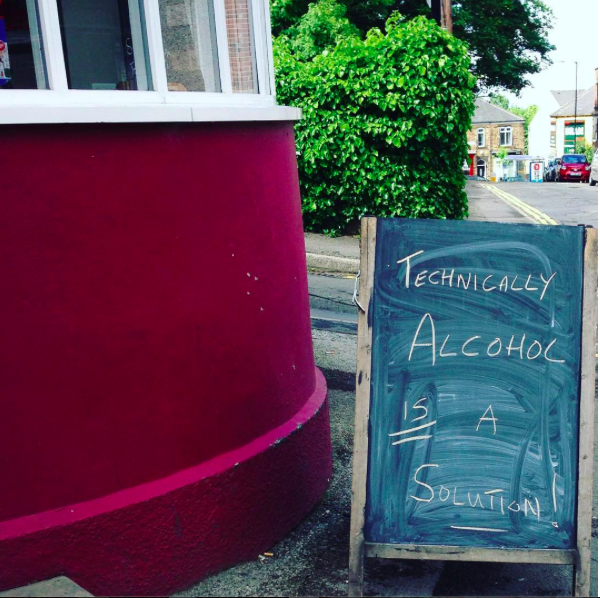 TECHNICALLY
ALCOHOL
IS A
SOLUTION!